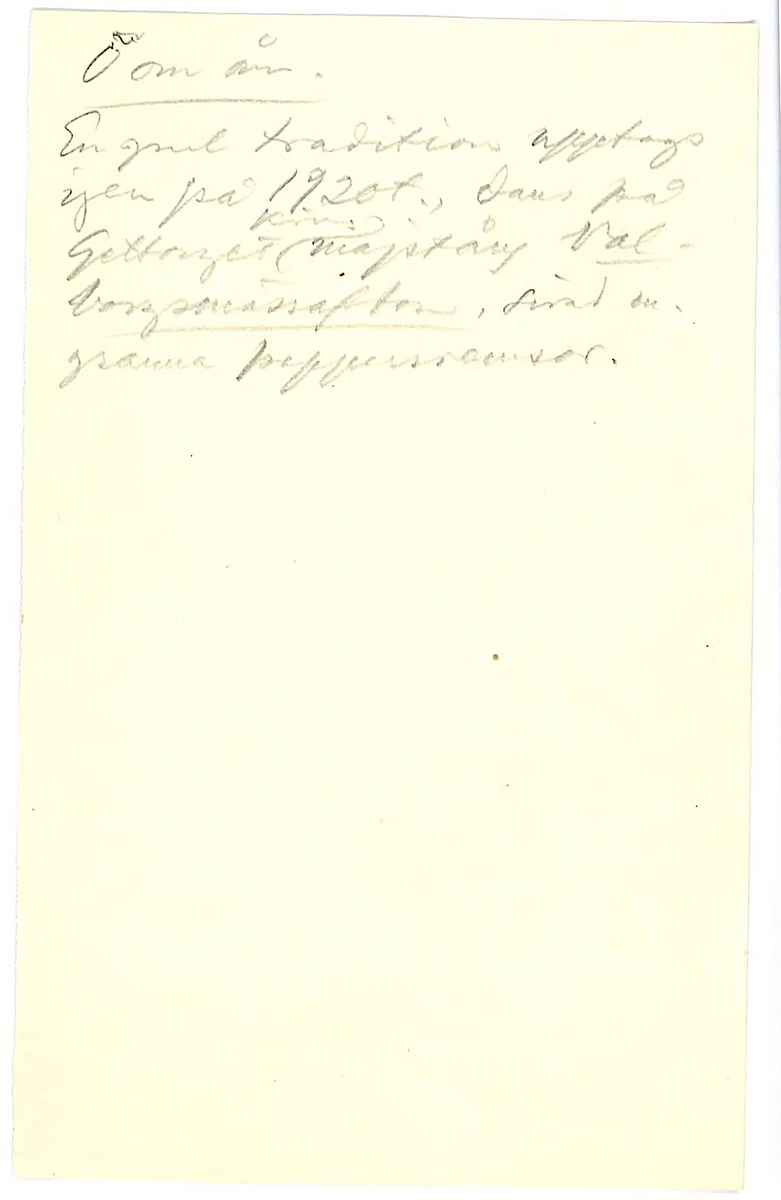 Ö om ån.
En gml tradition upptogs
igen på 1920 t., dans på
Gettorget (kring) majstång Val-
borgsmässafton, sirad m.
granna pappersremsor.